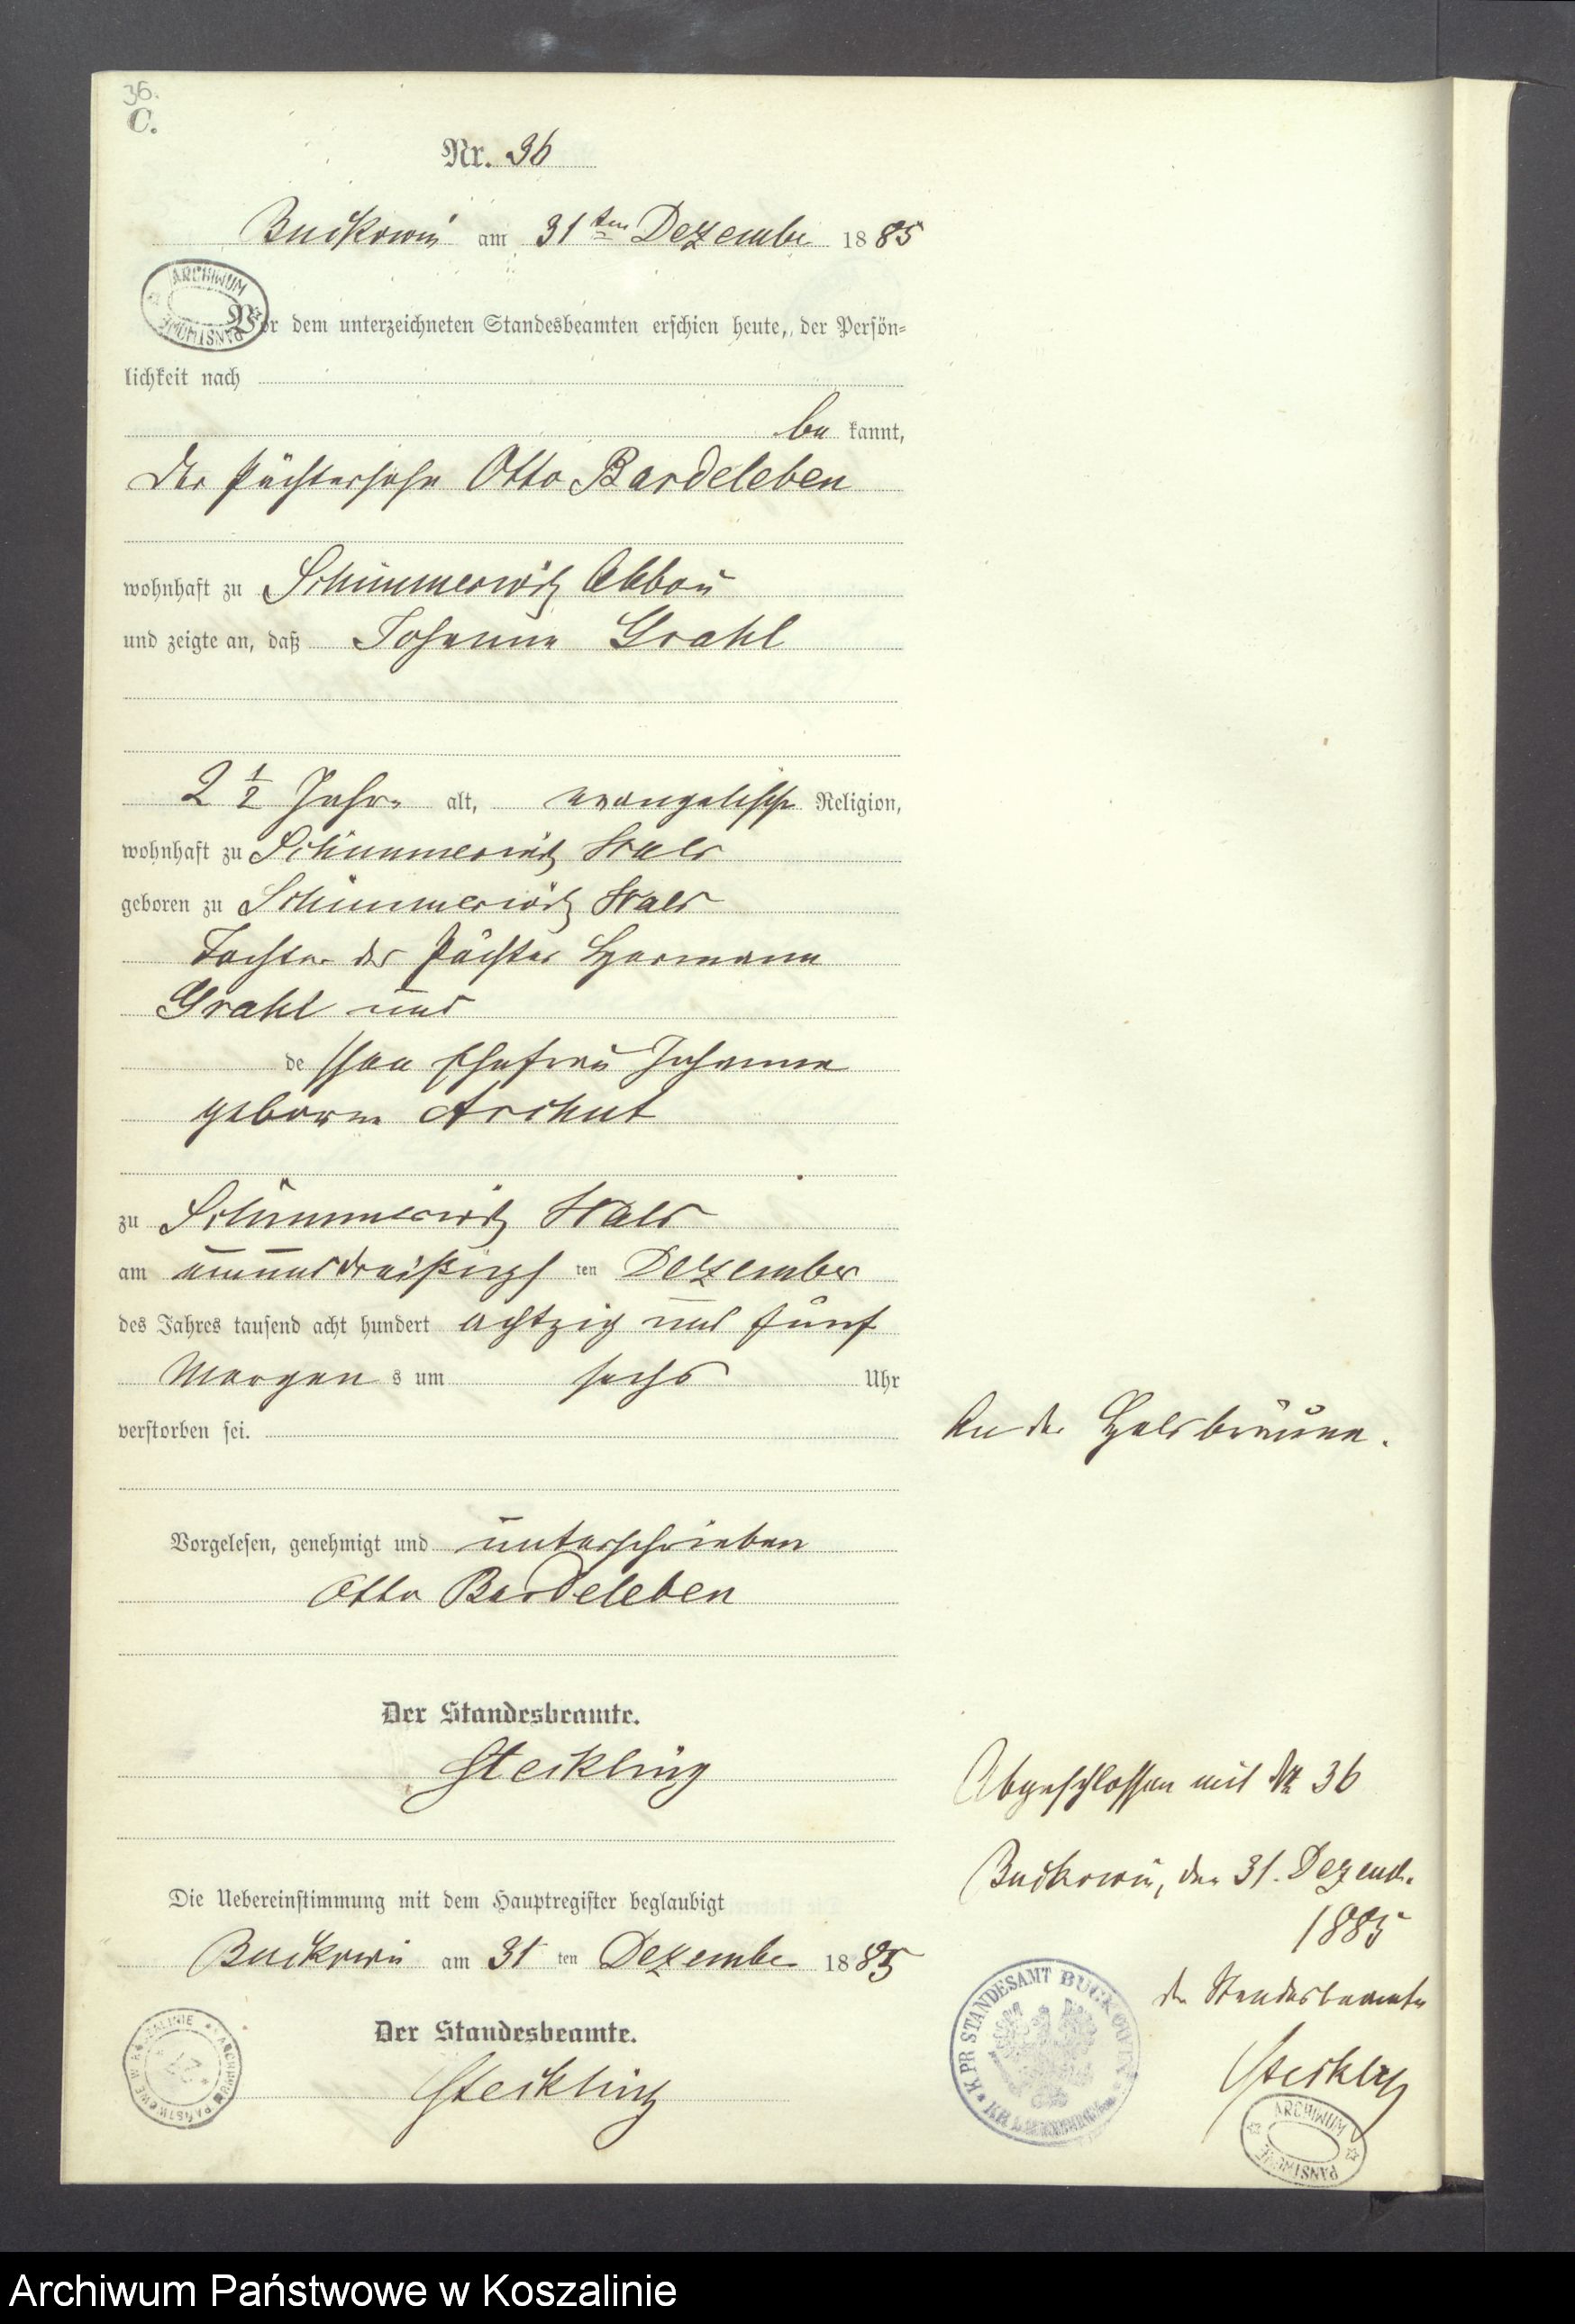 36.
C.
Nr. 36
Buckowin am 31ten Dezember 1885
Vor dem unterzeichneten Standesbeamten erschien heute, der Persön-
lichkeit nach
be kannt,
der Pächtersohn Otto Bardeleben
wohnhaft zu Schimmerwitz Abbau
und zeigte an, daß Johanna Grahl
2 1/2 Jahre alt, evangelischer Religion,
wohnhaft zu Schimmerwitz Wald
geboren zu Schimmerwitz Wald
Tochter des Pächter Hermann
Grahl und
de ssen Ehefrau Johanna
geborne Archut
zu Schimmerwitz Wald
am einunddreißigs ten Dezember
des Jahres tausend acht hundert achtzig und fünf
Morgen s um sechs Uhr
verstorben sei.
An der Halsbräune.
Vorgelesen, genehmigt und unterschrieben
Otto Bardeleben
Der Standesbeamte.
Steckling
Abgeschlossen mit Nr 36
Buckowin, den 31. Dezemb.
1885
der Standesbeamte
Steckling
Die Uebereinstimmung mit dem Hauptregister beglaubigt
Buckowin am 31 ten Dezember 1885
Der Standesbeamte.
Steckling
ARCHIWUM PAŃSTWOWE
ARCHIWUM PAŃSTWOWE W KOSZALINIE
K. PR STANDESAMT BUCKOWIN
ARCHIWUM PAŃSTWOWE
Archiwum Państwowe w Koszalinie